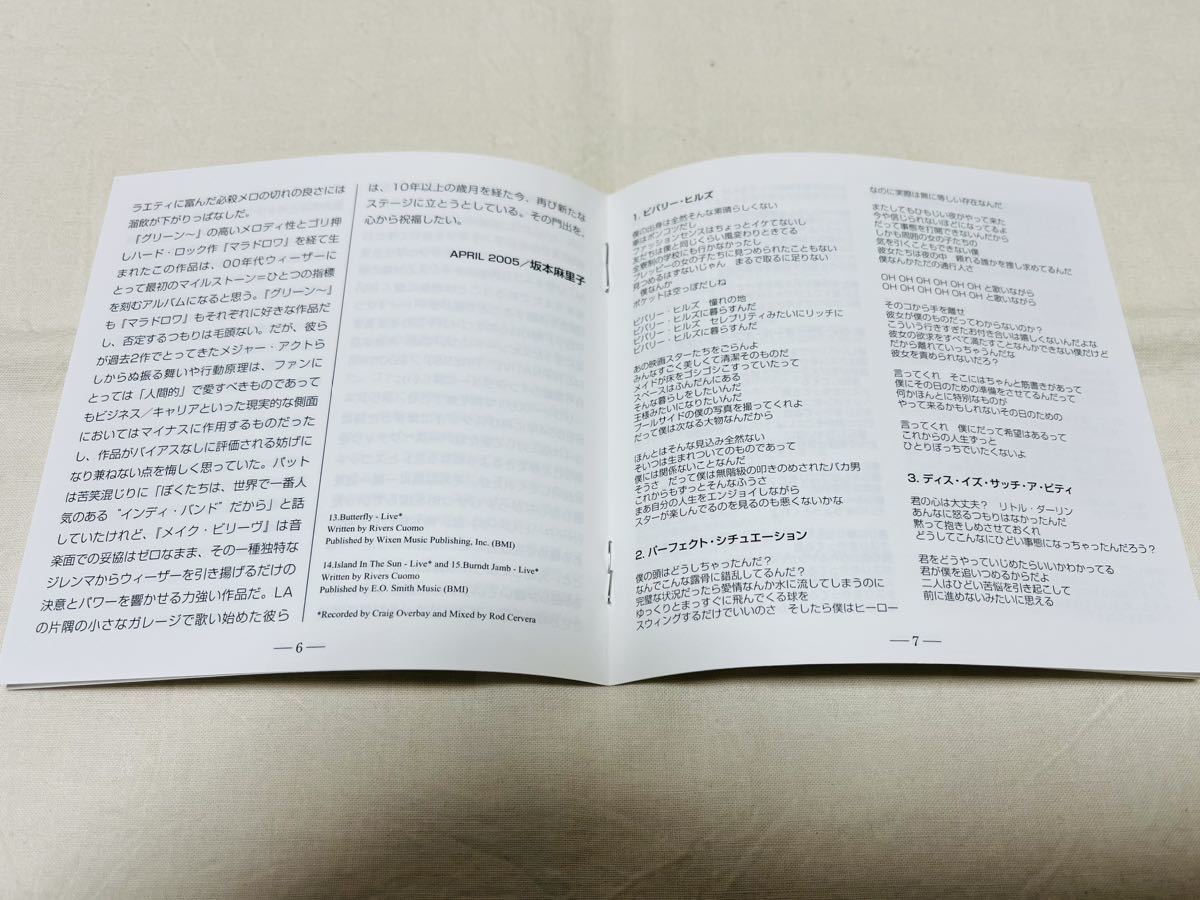 ラエティに富んだ必殺メロの切れの良さには
溜飲が下がりっぱなしだ。
『グリーン〜』の高いメロディ性とゴリ押
しハード・ロック作『マラドロワ』を経て生
まれたこの作品は、00年代ウィーザーに
とって最初のマイルストーン=ひとつの指標
を刻むアルバムになると思う。『グリーン〜』
も『マラドロワ』もそれぞれに好きな作品だ
し、否定するつもりは毛頭ない。だが、彼ら
が過去2作でとってきたメジャー・アクトら
しからぬ振る舞いや行動原理は、ファンに
とっては「人間的」で愛すべきものであって
もビジネス／キャリアといった現実的な側面
においてはマイナスに作用するものだった
し、作品がバイアスなしに評価される妨げに
なり兼ねない点を悔しく思っていた。パット
は苦笑混じりに「ぼくたちは、世界で一番人
気のある“インディ・バンド”だから」と話
していたけれど、『メイク・ビリーヴ』は音
楽面での妥協はゼロなまま、その一種独特な
ジレンマからウィーザーを引き揚げるだけの
決意とパワーを響かせる力強い作品だ。LA
の片隅の小さなガレージで歌い始めた彼ら
は、10年以上の歳月を経た今、再び新たな
ステージに立とうとしている。その門出を、
心から祝福したい。
APRIL 2005／坂本麻里子
13.Butterfly - Live*
Written by Rivers Cuomo
Published by Wixen Music Publishing, Inc. (BMI)
14.Island In The Sun - Live* and 15.Burndt Jamb - Live*
Written by Rivers Cuomo
Published by E.O. Smith Music (BMI)
*Recorded by Craig Overbay and Mixed by Rod Cervera
— 6 —
1. ビバリー・ヒルズ
僕の出身は全然そんな素晴らしくない
車はポンコツだし
ファッションセンスはちょっとイケてないし
友だちは僕と同じくらい風変わりときてる
全寮制の学校にも行かなかったし
プレッピーの女の子たちに見つめられたこともない
見つめるはずないじゃん　まるで取るに足りない
僕なんか
ポケットは空っぽだしね
ビバリー・ヒルズ　憧れの地
ビバリー・ヒルズに暮らすんだ
ビバリー・ヒルズ　セレブリティみたいにリッチに
ビバリー・ヒルズに暮らすんだ
あの映画スターたちをごらんよ
みんなすごく美しくて清潔そのものだ
メイドが床をゴシゴシこすっていたって
スペースはふんだんにある
そんな暮らしをしたいんだ
王様みたいになりたいんだ
プールサイドの僕の写真を撮ってくれよ
だって僕は次なる大物なんだから
ほんとはそんな見込み全然ない
そいつは生まれついてのものであって
僕には関係ないことなんだ
そうさ　だって僕は無階級の叩きのめされたバカ男
これからもずっとそんなふうさ
まあ自分の人生をエンジョイしながら
スターが楽しんでるのを見るのも悪くないかな
2. パーフェクト・シチュエーション
僕の頭はどうしちゃったんだ？
なんでこんな露骨に錯乱してるんだ？
完璧な状況だったら愛情なんか水に流してしまうのに
ゆっくりとまっすぐに飛んでくる球を
スウィングするだけでいいのさ　そしたら僕はヒーロー
なのに実際は無に等しい存在なんだ
またしてもひもじい夜がやって来た
今や信じられないほどになってるよ
だって事態を打開できないんだから
しかも周囲の女の子たちの
気を引くこともできない僕
彼女たちは夜の中　頼れる誰かを捜し求めてるんだ
僕なんかただの通行人さ
OH OH OH OH OH OH と歌いながら
OH OH OH OH OH OH と歌いながら
そのコから手を離せ
彼女が僕のものだってわからないのか？
こういう行きすぎたお付き合いは嬉しくないんだよな
彼女の欲求をすべて満たすことなんかできない僕だけど
だから離れていっちゃうんだな
彼女を責められないだろ？
言ってくれ　そこにはちゃんと筋書きがあって
僕にその日のための準備をさせてるんだって
何かほんとに特別なものが
やって来るかもしれないその日のための
言ってくれ　僕にだって希望はあるって
これからの人生ずっと
ひとりぼっちでいたくないよ
3. ディス・イズ・サッチ・ア・ピティ
君の心は大丈夫？　リトル・ダーリン
あんなに怒るつもりはなかったんだ
黙って抱きしめさせておくれ
どうしてこんなにひどい事態になっちゃったんだろう？
君をどうやっていじめたらいいかわかってる
君が僕を追いつめるからだよ
二人はひどい苦悩を引き起こして
前に進めないみたいに思える
— 7 —